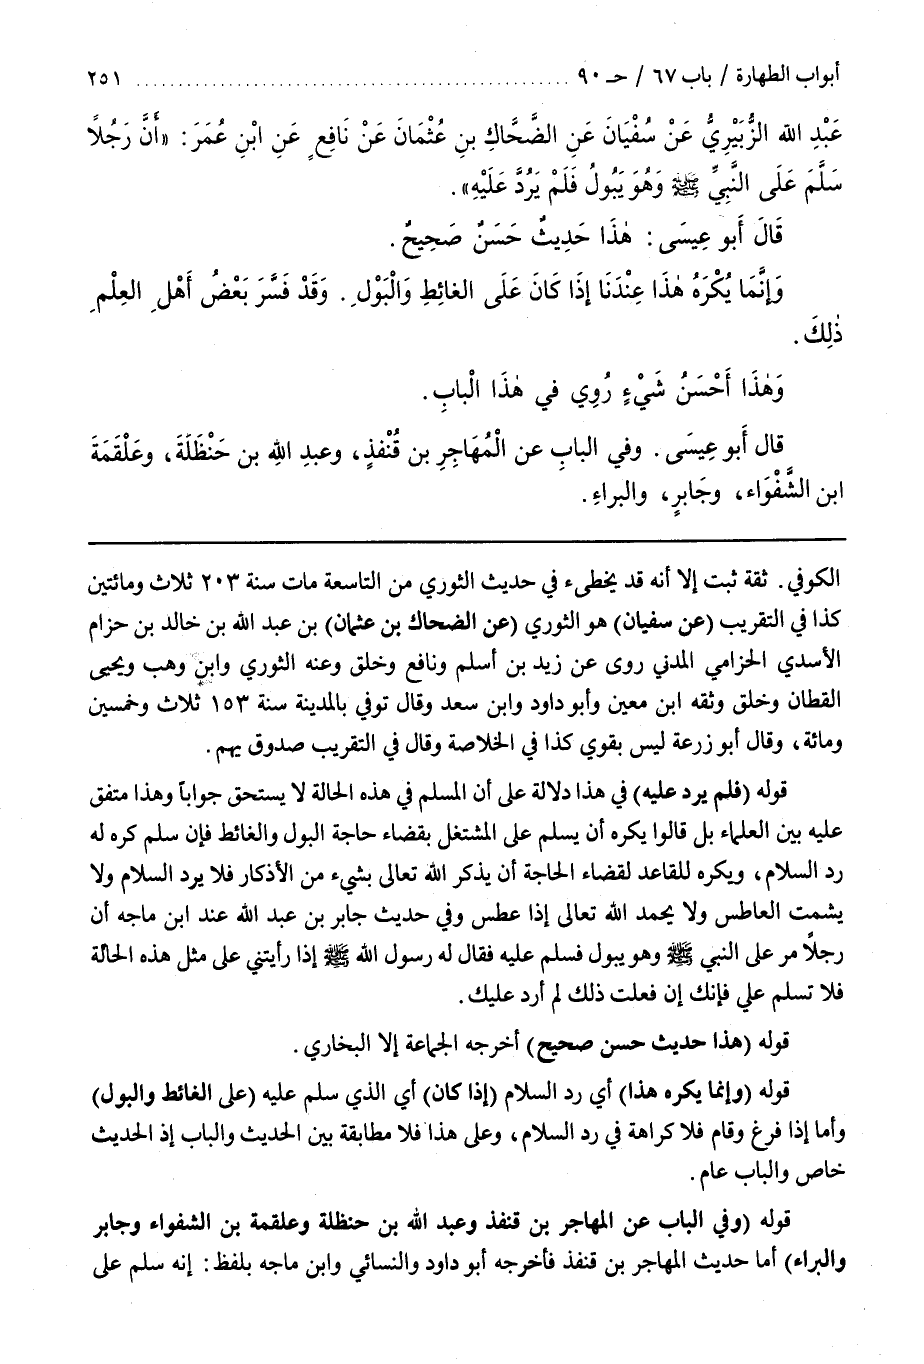 أبواب الطهارة / باب ٦٧ / حـ ٩٠ ........................................ ٢٥١
عَبْدِ الله الزُّبَيْرِيُّ عَنْ سُفْيَانَ عَنِ الضَّحَّاكِ بنِ عُثْمَانَ عَنْ نَافِعٍ عَنِ ابْنِ عُمَرَ: «أَنَّ رَجُلًا
سَلَّمَ عَلَى النَّبِيِّ ﷺ وَهُوَ يَبُولُ فَلَمْ يَرُدَّ عَلَيْهِ».
قَالَ أَبو عِيسَى: هٰذَا حَدِيثٌ حَسَنٌ صَحِيحٌ.
وَإِنَّمَا يُكْرَهُ هٰذَا عِنْدَنَا إذَا كَانَ عَلَى الغَائِطِ وَالْبَوْلِ. وَقَدْ فَسَّرَ بَعْضُ أَهْلِ العِلْمِ
ذٰلِكَ.
وَهٰذَا أَحْسَنُ شَيْءٍ رُوِي في هٰذَا الْبابِ.
قال أَبو عِيسَى. وفي البابِ عن الْمُهَاجِرِ بن قُنْفذٍ، وعبدِ اللهِ بن حَنْظَلَةَ، وعَلْقَمَةَ
ابن الشَّفْوَاء، وجَابرٍ، والبراءِ.
الكوفي. ثقة ثبت إلا أنه قد يخطىء في حديث الثوري من التاسعة مات سنة ٢٠٣ ثلاث ومائتين
كذا في التقريب (عن سفيان) هو الثوري (عن الضحاك بن عثمان) بن عبد الله بن خالد بن حزام
الأسدي الحزامي المدني روى عن زيد بن أسلم ونافع وخلق وعنه الثوري وابن وهب ويحيى
القطان وخلق وثقه ابن معين وأبو داود وابن سعد وقال توفي بالمدينة سنة ١٥٣ ثلاث وخمسين
ومائة، وقال أبو زرعة ليس بقوي كذا في الخلاصة وقال في التقريب صدوق يهم.
قوله (فلم يرد عليه) في هذا دلالة على أن المسلم في هذه الحالة لا يستحق جواباً وهذا متفق
عليه بين العلماء بل قالوا يكره أن يسلم على المشتغل بقضاء حاجة البول والغائط فإن سلم كره له
رد السلام، ويكره للقاعد لقضاء الحاجة أن يذكر الله تعالى بشيء من الأذكار فلا يرد السلام ولا
يشمت العاطس ولا يحمد الله تعالى إذا عطس وفي حديث جابر بن عبد الله عند ابن ماجه أن
رجلاً مر على النبي ﷺ وهو يبول فسلم عليه فقال له رسول الله ﷺ إذا رأيتني على مثل هذه الحالة
فلا تسلم علي فإنك إن فعلت ذلك لم أرد عليك.
قوله (هذا حديث حسن صحيح) أخرجه الجماعة إلا البخاري.
قوله (وإنما يكره هذا) أي رد السلام (إذا كان) أي الذي سلم عليه (على الغائط والبول)
وأما إذا فرغ وقام فلا كراهة في رد السلام، وعلى هذا فلا مطابقة بين الحديث والباب إذ الحديث
خاص والباب عام.
قوله (وفي الباب عن المهاجر بن قنفذ وعبد الله بن حنظلة وعلقمة بن الشفواء وجابر
والبراء) أما حديث المهاجر بن قنفذ فأخرجه أبو داود والنسائي وابن ماجه بلفظ: إنه سلم على